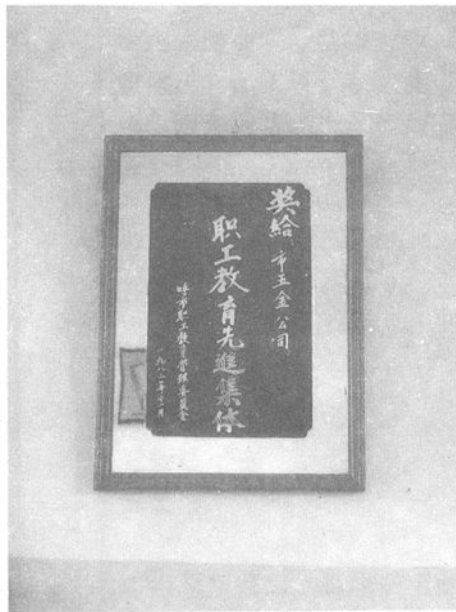 奖给 市五金公司
职工教育先進集体
哈市职工教育管理委員会
一九八二年十一月